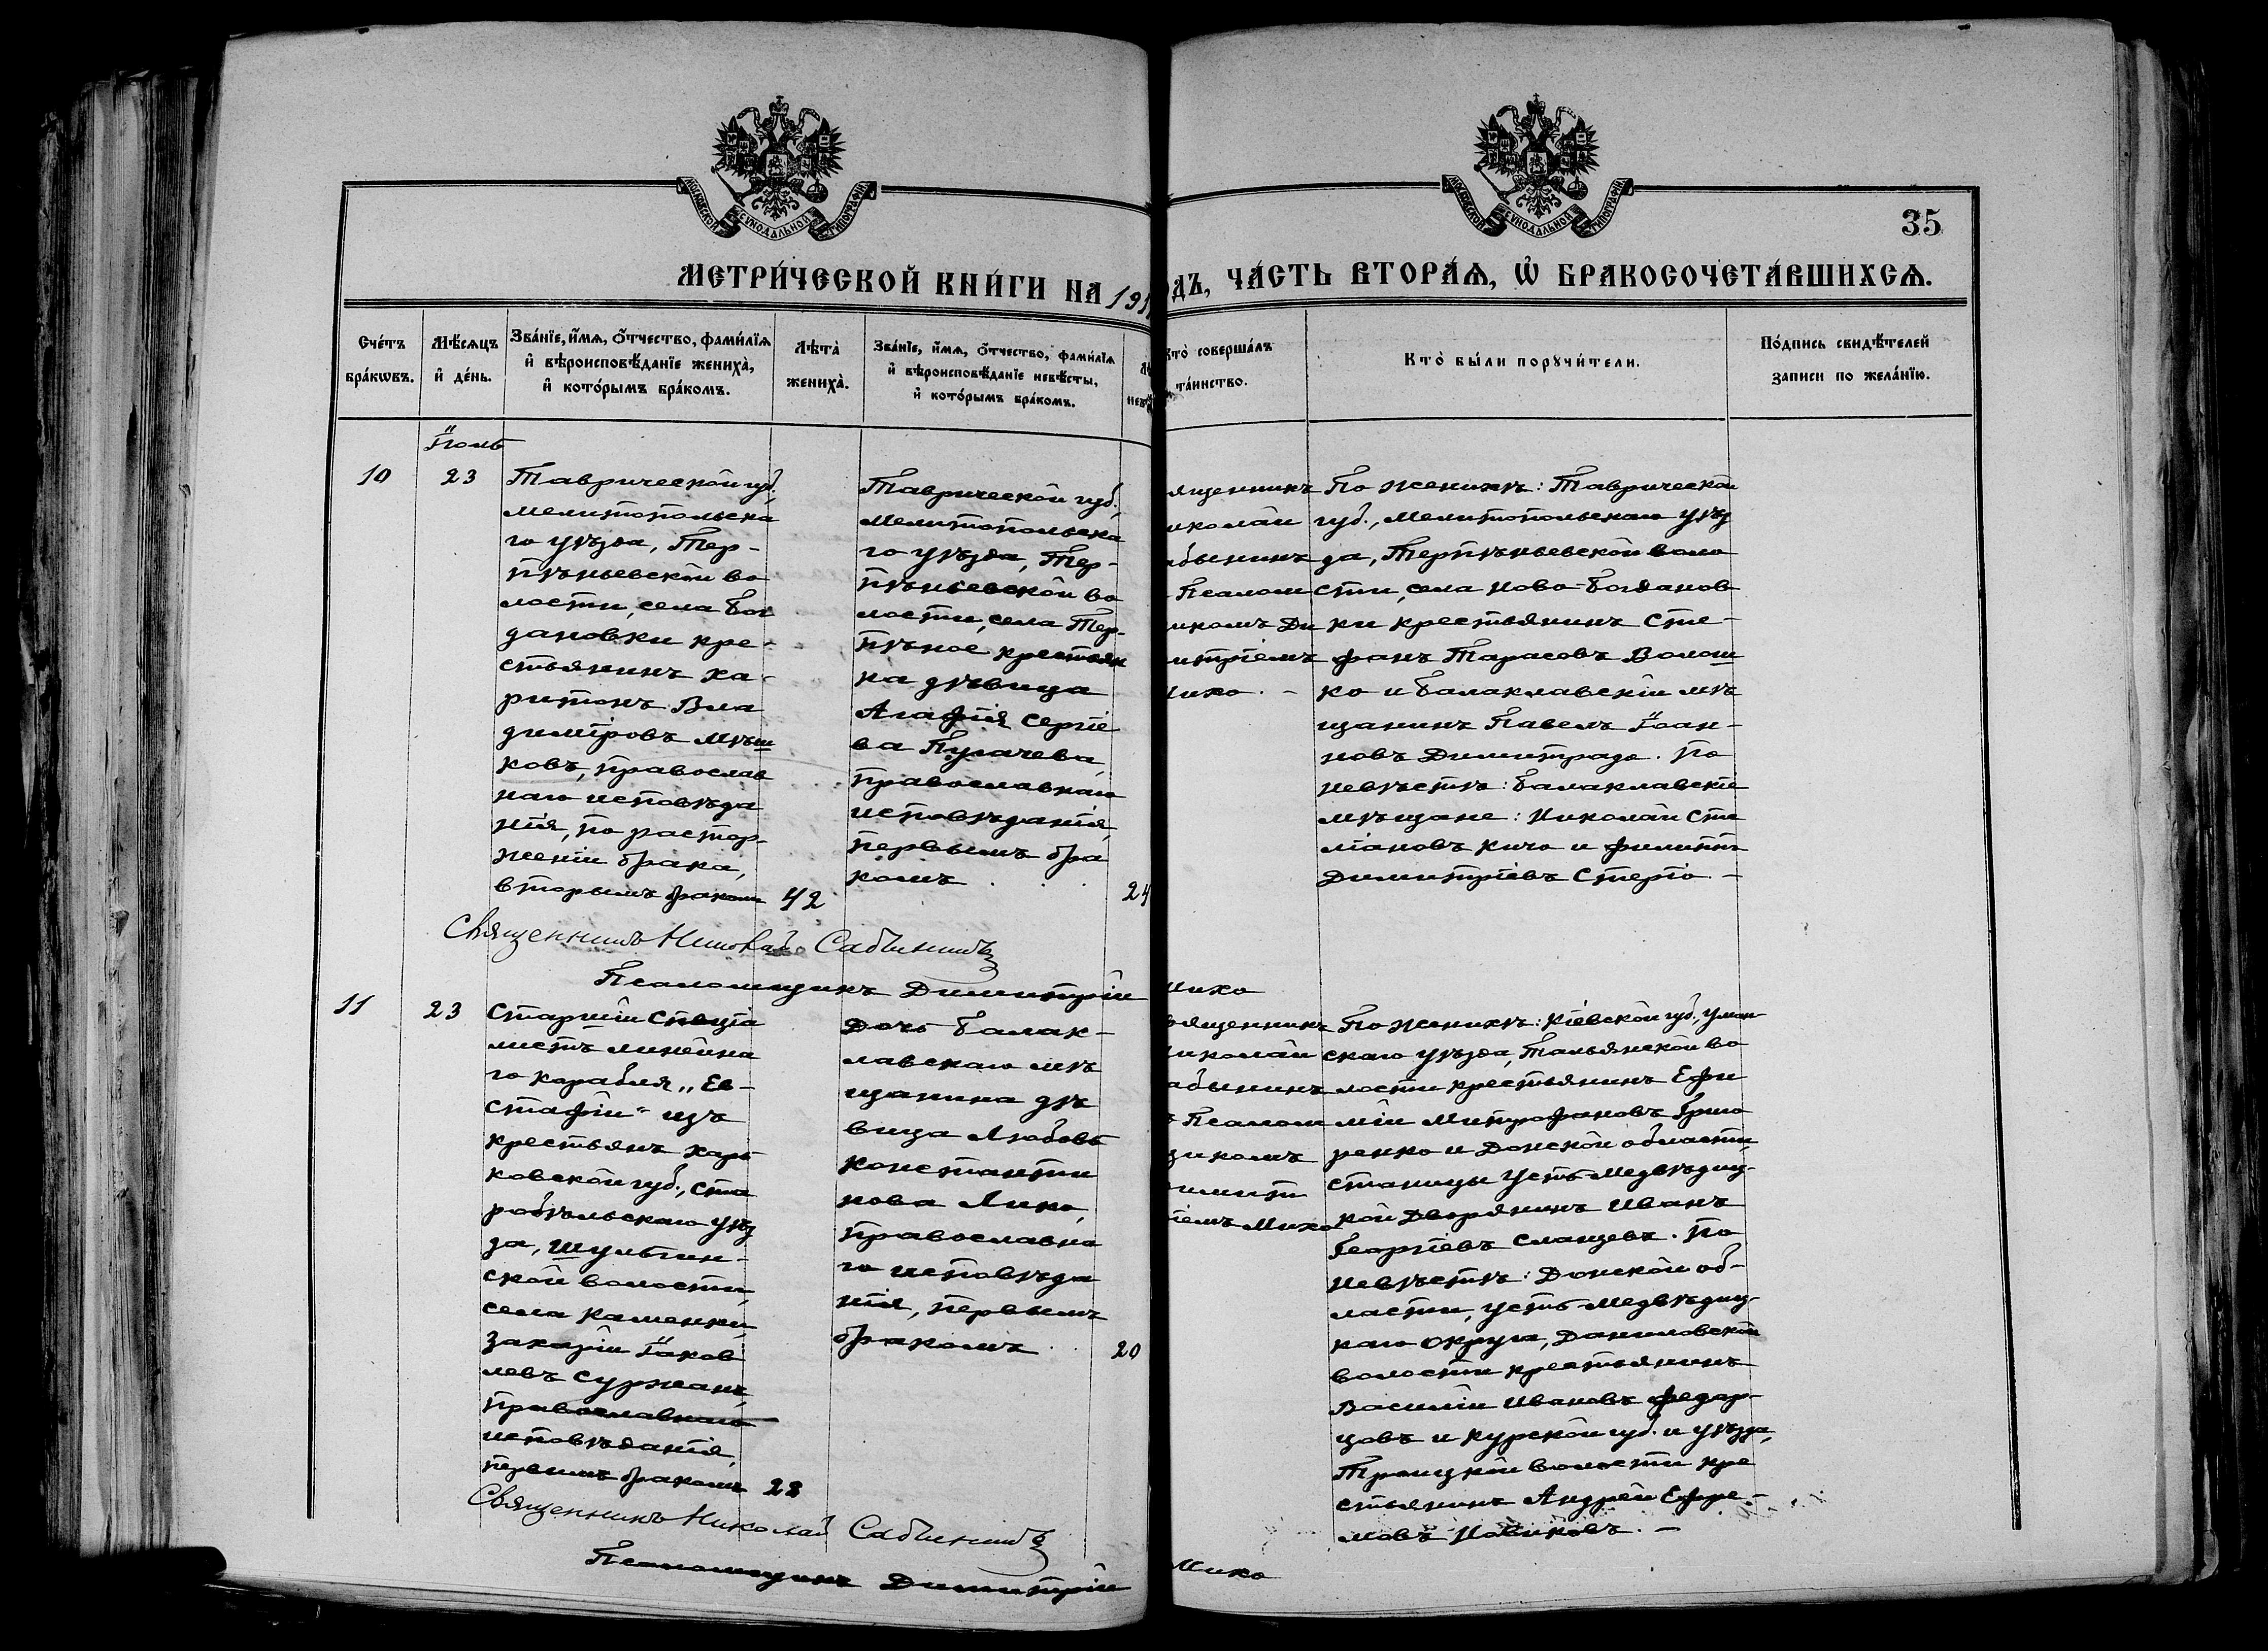 МОСКОВСКОЙ СѴНОДАЛЬНОЙ ТИПОГРАФІИ
МОСКОВСКОЙ СѴНОДАЛЬНОЙ ТИПОГРАФІИ
35
МЕТРИ́ЧЕСКОЙ КНИ́ГИ НА 191
ОДЪ, ЧА́СТЬ ВТОРА́Ѧ, Ѡ БРАКОСОЧЕТА́ВШИХСѦ.
Сче́тъ
бра́кѡвъ.
Мѣ́сѧцъ
и҆ де́нь.
Зва́нїе, и҆́мѧ, ѻ҆́тчество, фами́лїѧ
и҆ вѣроисповѣ́данїе жениха̀,
и҆ кото́рымъ бра́комъ.
Лѣ́та
жениха̀.
Зва́нїе, и҆́мѧ, ѻ҆́тчество, фами́лїѧ
и҆ вѣроисповѣ́данїе невѣ́сты,
и҆ кото́рымъ бра́комъ.
Кто̀ соверша́лъ
та́инство.
Кто̀ бы́ли порꙋчи́тели.
По́дпись свидѣ́телей
записи по жела́нїю.
Іюль
10
23
Таврической губ.
Мелитопольска
го уѣзда, Тер-
пѣньевской во
лости, села Бог
дановки кре-
стьянинъ Ха-
ритонъ Вла
диміровъ Мѣш
ковъ, православ
наго исповѣда
нія, по растор-
женіи брака,
вторымъ бракомъ
42
Таврической губ.,
Мелитопольска
го уѣзда, Тер-
пѣньевской во
лости, села Тер-
пѣное крестьян
ка дѣвица
Агафія Сергіе
ва Пугачева,
православнаго
исповѣданія,
первымъ бра
комъ
24
ященникъ
иколай
абынинъ
Псалом
икомъ Ди
итріемъ
Михо. -
По женихѣ: Таврической
губ., Мелитопольскаго уѣз
да, Терпѣньевской воло
сти, села Ново-Богданов
ки крестьянинъ Сте-
фанъ Тарасовъ Волош
ко и Балаклавскій мѣ
щанинъ Павелъ Іоан-
новъ Димитрадо. По
невѣстѣ: Балаклавскіе
мѣщане: Николай Сти
ліановъ Кичо и Филиппъ
Димитріевъ Стеріо. -
Священникъ Николай Сабынинъ
Псаломщикъ Димитрій
Михо
11
23
Старшій спеціа
листъ линейна
го корабля „Ев-
стафій" изъ
крестьянъ Харь
ковской губ., Ста
робѣльскаго уѣз
да, Шульгин-
ской волости,
села Каменки,
Захарій Іаков
левъ Суржанъ,
православнаго
исповѣданія,
первымъ бракомъ
28
Дочь Балак-
лавскаго мѣ
щанина дѣ
вица Любовь
Константи
нова Лико,
православна
го исповѣда
нія, первымъ
бракомъ
20
ященникъ
иколай
абынинъ
Псалом
щикомъ
имит
іемъ Михо
По женихѣ: Кіевской губ., Уман-
скаго уѣзда, Тальянской во
лости крестьянинъ Ефи
мій Митрофановъ Григо
ренко и Донской области,
станицы Усть-Медвѣдиц-
кой Дворянинъ Иванъ
Георгіевъ Сланцевъ. По
невѣстѣ: Донской об-
ласти, Усть-Медвѣдиц-
каго округа, Даниловской
волости крестьянинъ
Василій Ивановъ Федор-
цовъ и Курской губ. и уѣзда,
Троицкой волости кре
стьянинъ Андрей Ефре-
мовъ Новиковъ. -
Священникъ Николай Сабынинъ
Псаломщикъ Димитрій
Михо